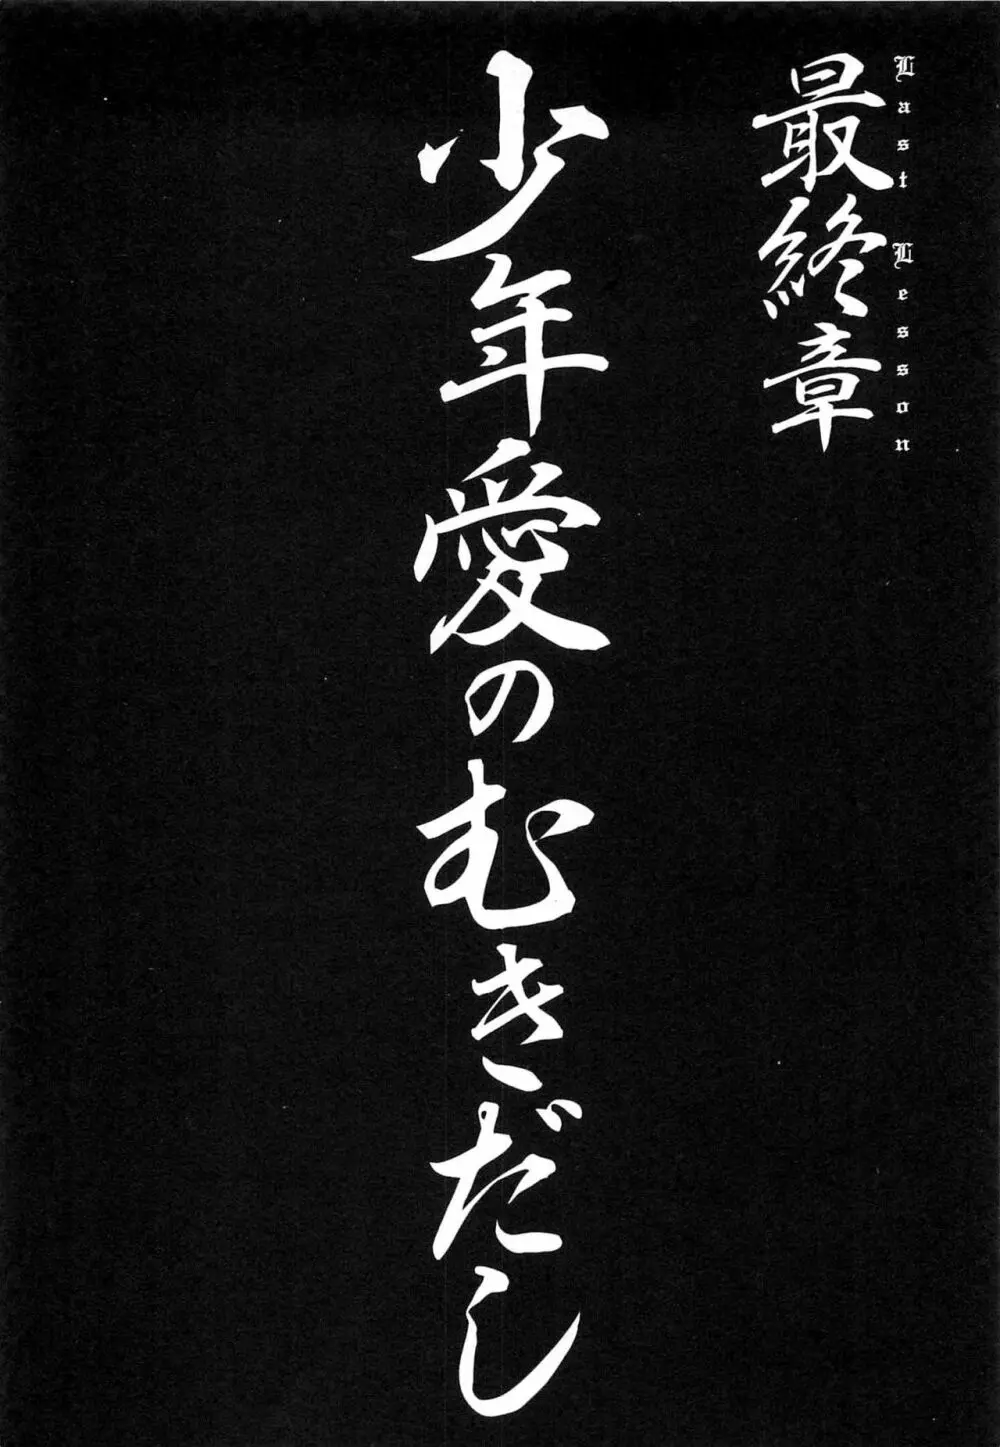 Last Lesson
最終章
少年愛のむきだし